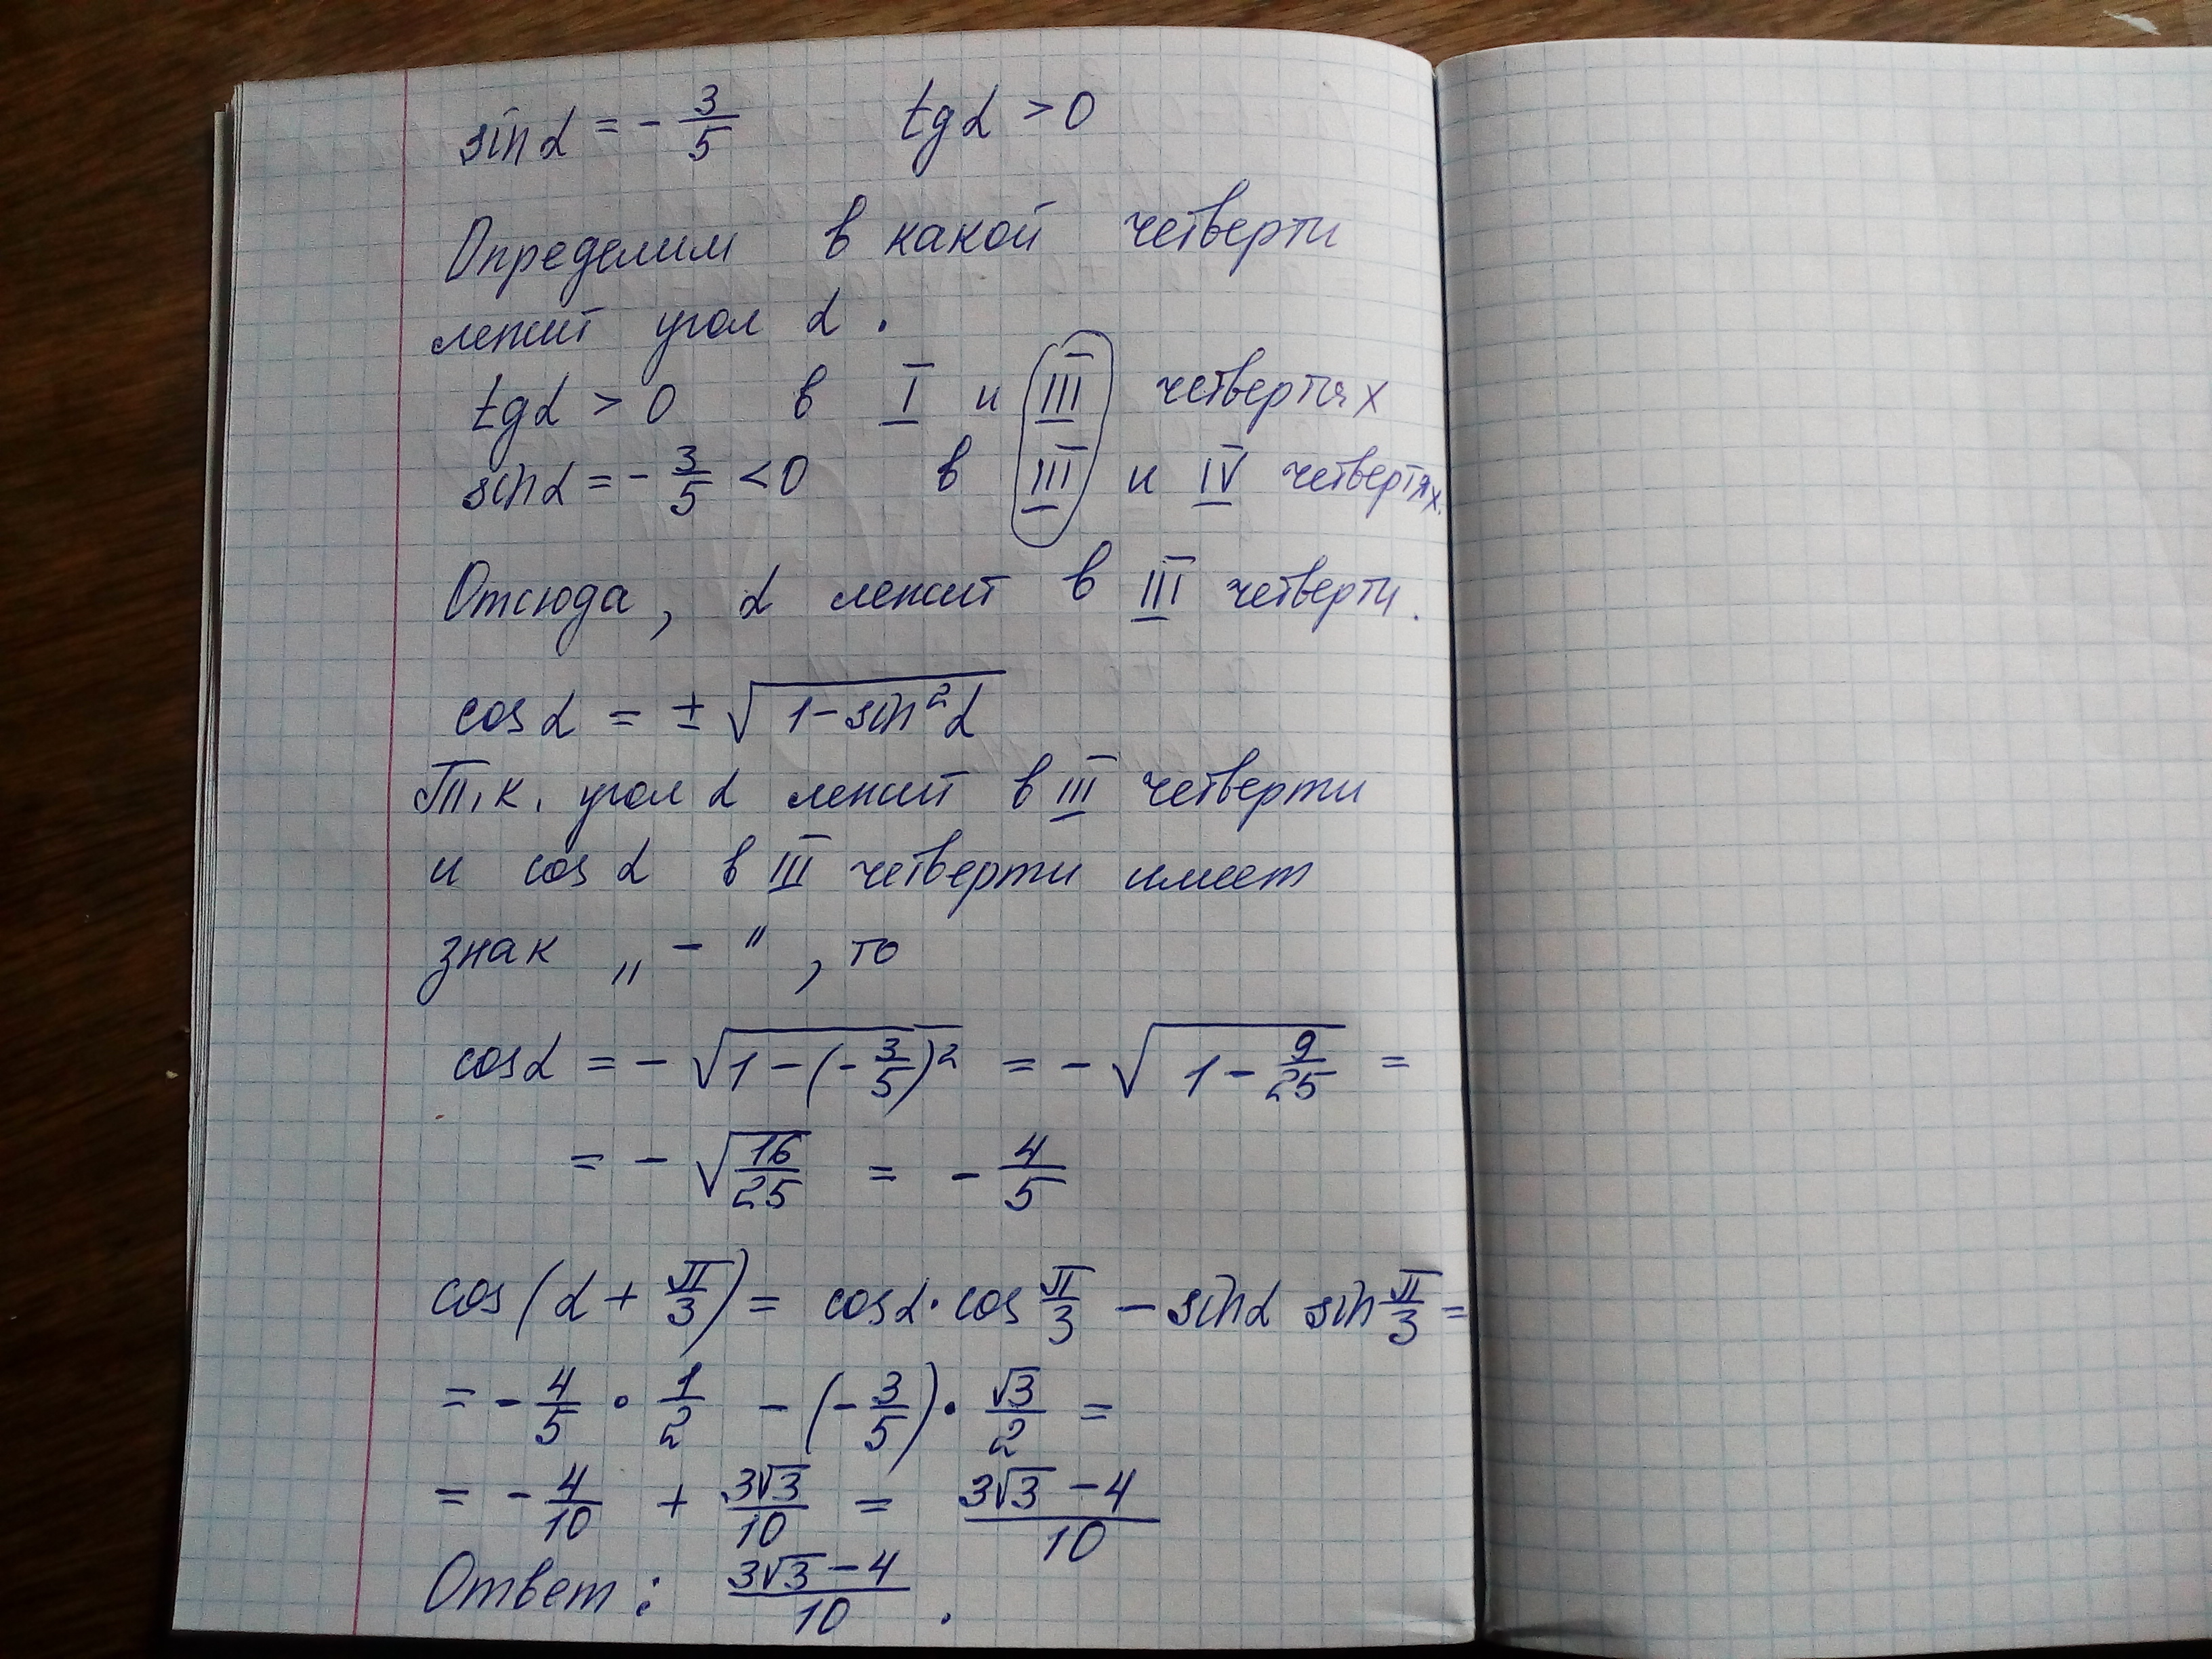 sin α = - 3/5 tg α > 0
Определим в какой четверти
лежит угол α .
tg α > 0 в I и III четвертях
sin α = - 3/5 < 0 в III и IV четвертях.
Отсюда, α лежит в III четверти.
cos α = ± √(1 - sin² α)
Т.к. угол α лежит в III четверти
и cos α в III четверти имеет
знак „ - ", то
cos α = - √(1 - (- 3/5)²) = - √(1 - 9/25) =
= - √(16/25) = - 4/5
cos(α + π/3) = cos α · cos π/3 - sin α sin π/3 =
= - 4/5 · 1/2 - (- 3/5) · √3/2 =
= - 4/10 + 3√3/10 = (3√3 - 4)/10
Ответ: (3√3 - 4)/10 .